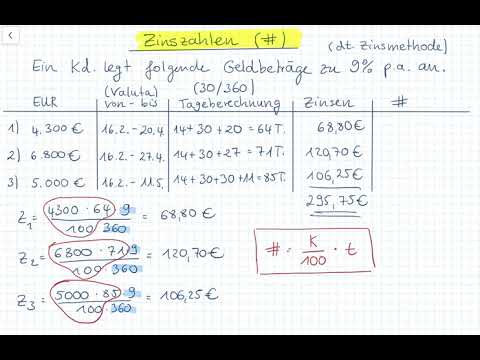 Zinszahlen (#)
(dt. Zinsmethode)
Ein Kd. legt folgende Geldbeträge zu 9% p.a. an.
(Valuta) (30/360)
EUR von - bis Tageberechnung Zinsen #
1) 4.300 € 16.2. - 20.4 14 + 30 + 20 = 64 T. 68,80 €
2) 6.800 € 16.2. - 27.4. 14 + 30 + 27 = 71 T. 120,70 €
3) 5.000 € 16.2. - 11.5. 14 + 30 + 30 + 11 = 85 T. 106,25 €
295,75 €
Z1 = 4300 · 64 · 9 / 100 · 360 = 68,80 €
Z2 = 6800 · 71 · 9 / 100 · 360 = 120,70 €
# = K / 100 · t
Z3 = 5000 · 85 · 9 / 100 · 360 = 106,25 €